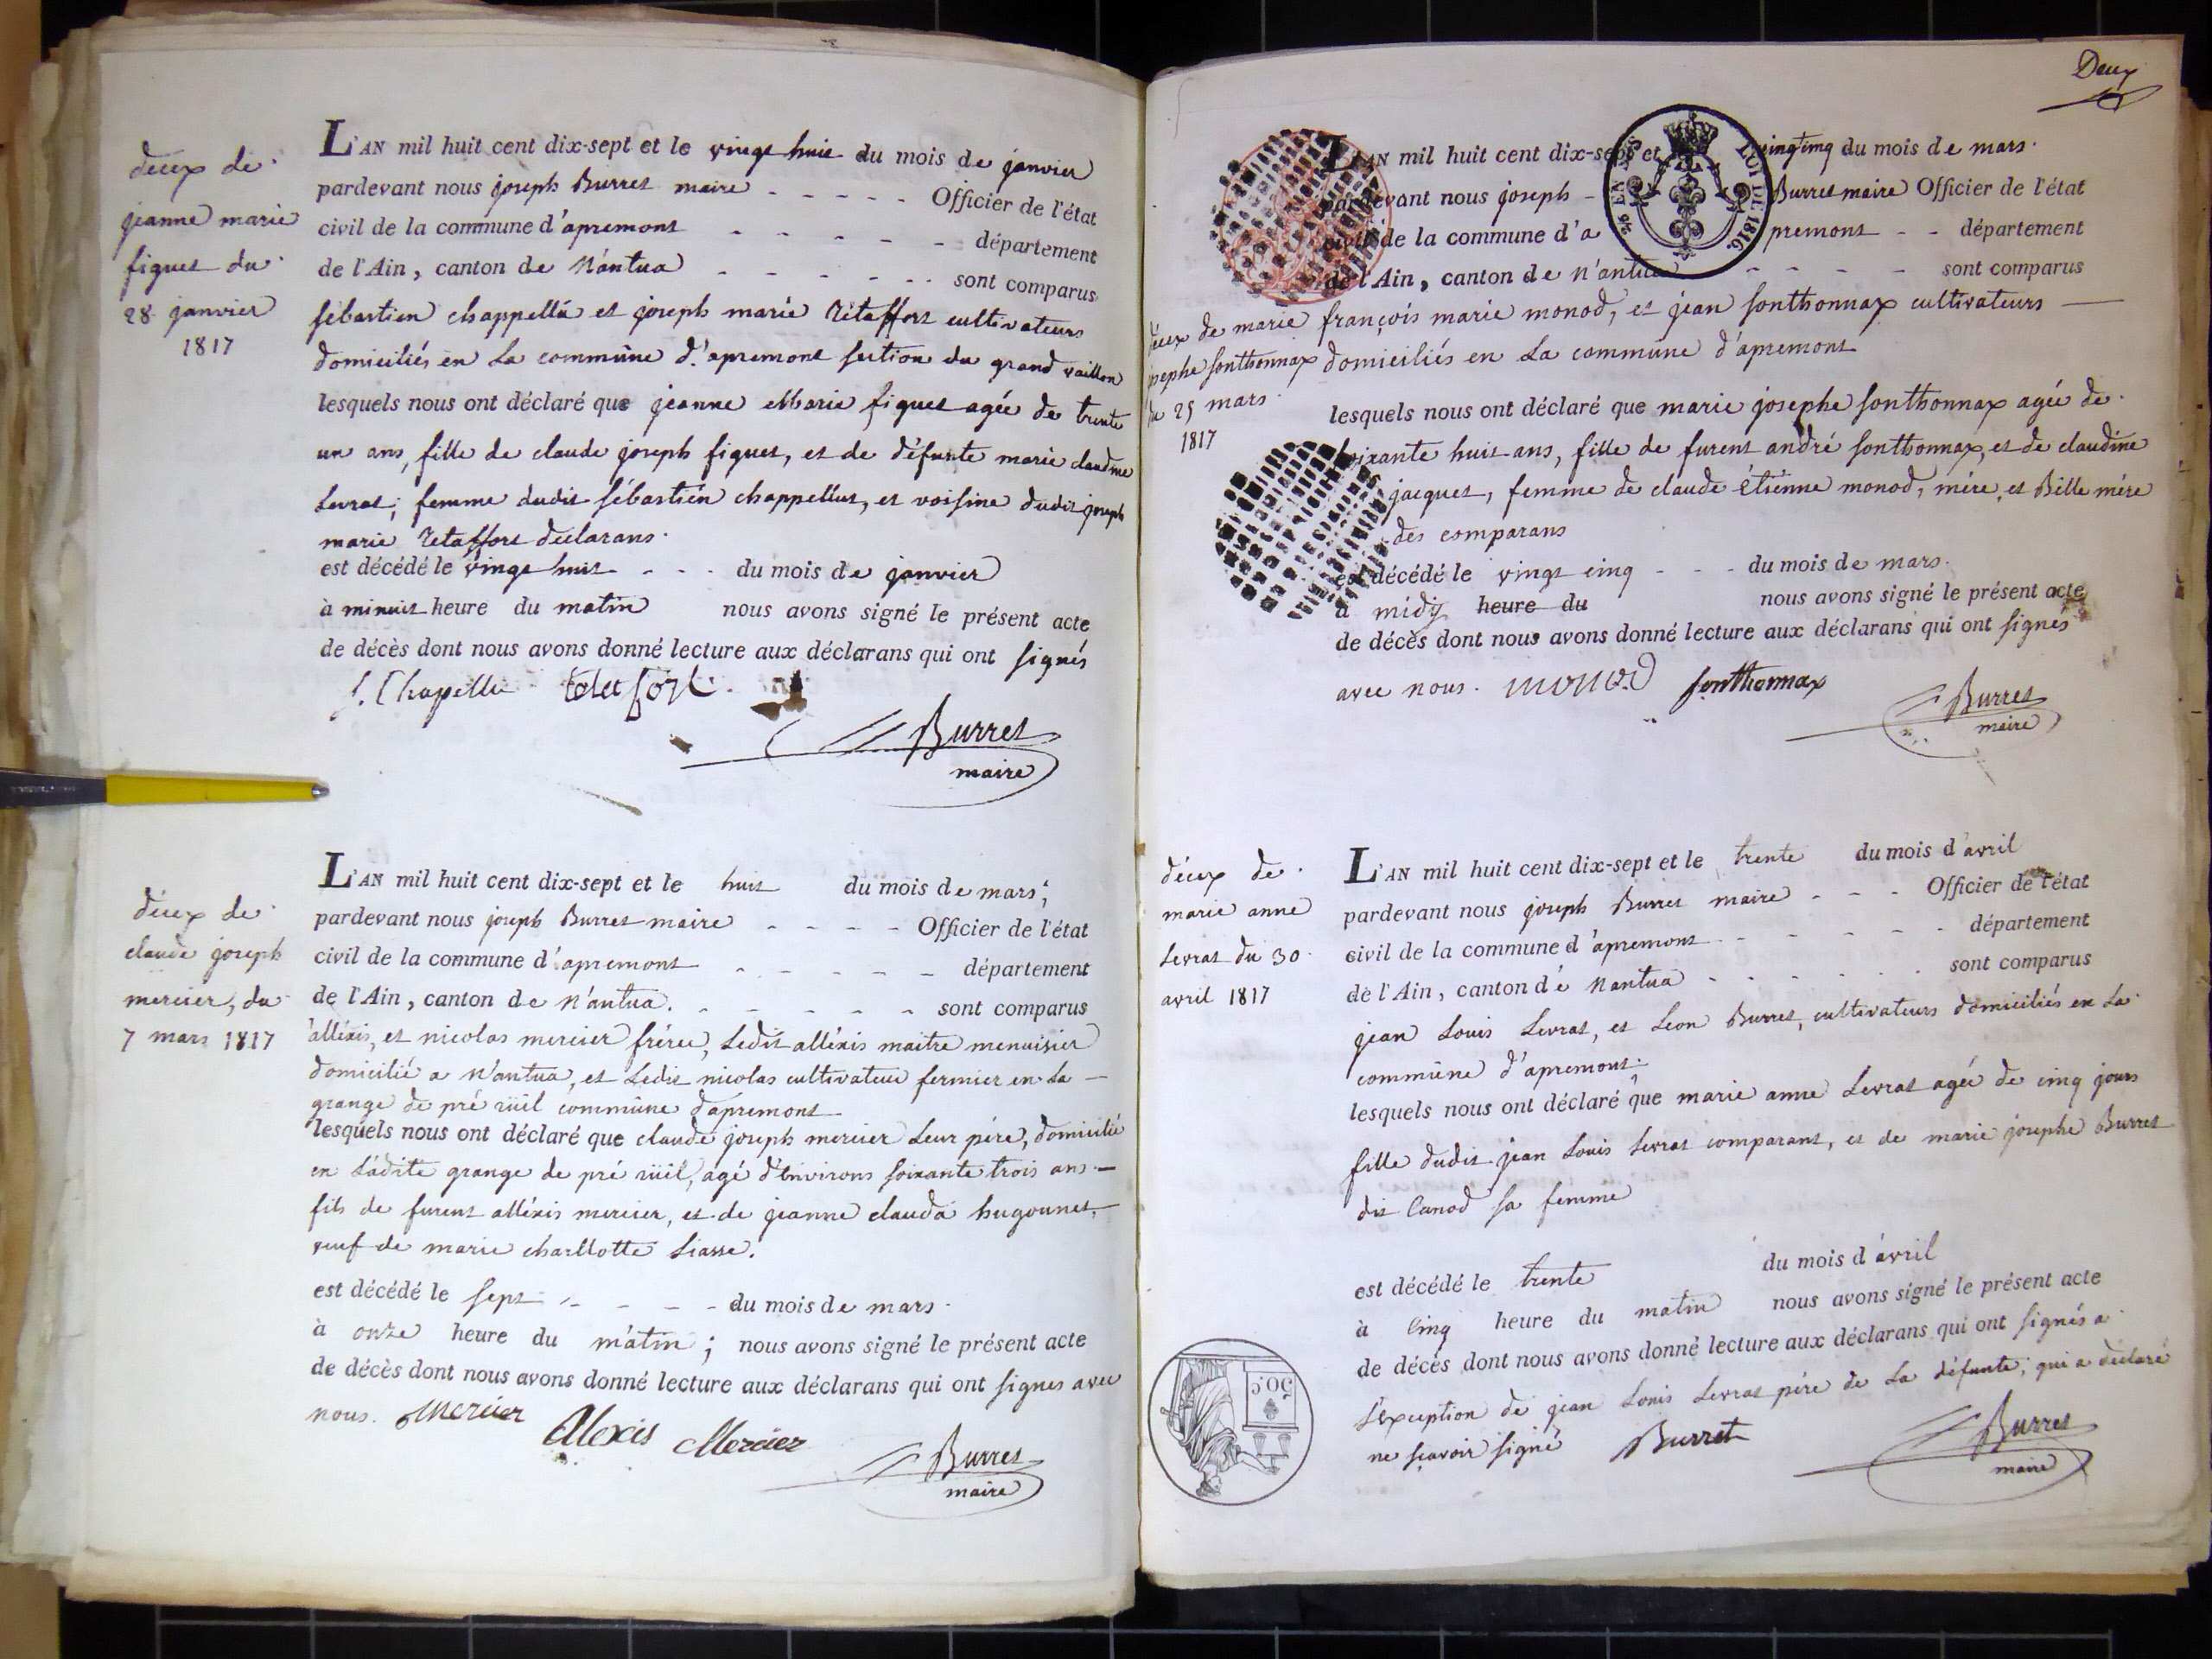 décès de
jeanne marie
figuet du
28 janvier
1817
L'AN mil huit cent dix-sept et le vingt huit du mois de janvier
pardevant nous joseph Burret maire - - - - Officier de l'état
civil de la commune d'apremont - - - - - département
de l'Ain, canton de Nantua - - - - - - sont comparus
sébastien chappellu et joseph marie Tétaffort cultivateurs
domiciliés en la commune d'apremont section du grand vaillon
lesquels nous ont déclaré que jeanne Marie figuet agée de trente
un ans, fille de claude joseph figuet, et de défunte marie claudine
Levrat; femme dudit sébastien chappellut, et voisine dudit joseph
marie Tétaffort déclarans.
est décédé le vingt huit - - - du mois de janvier
à minuit heure du matin nous avons signé le présent acte
de décès dont nous avons donné lecture aux déclarans qui ont signés
S. Chapellu
Burret
maire
décès de
claude joseph
mercier, du
7 mars 1817
L'AN mil huit cent dix-sept et le huit du mois de mars;
pardevant nous joseph Burret maire - - - - Officier de l'état
civil de la commune d'apremont - - - - - département
de l'Ain, canton de Nantua. - - - - - sont comparus
alléxis, et nicolas mercier frérec, Ledit alléxis maitre menuisier
domicilié a Nantua, et Ledit nicolas cultivateur fermier en La —
grange de pré rüil commune d'apremont
lesquels nous ont déclaré que claude joseph mercier Leur pére, domicilié
en Ladite grange de pré rüil, agé d'environs soixante trois ans —
fils de furent alléxis mercier, et de jeanne clauda hugounet,
veuf de marie charllotte Liasse.
est décédé le sept - - - - du mois de mars.
à onze heure du matin; nous avons signé le présent acte
de décès dont nous avons donné lecture aux déclarans qui ont signes avec
nous. Mercier Alexis Mercier
Burret
maire
Deux
L'AN mil huit cent dix-sept et vingt cinq du mois de mars.
pardevant nous joseph - Burret maire Officier de l'état
civil de la commune d'a premont - - département
de l'Ain, canton de Nantua - - - - sont comparus
* EN SUS LOI DE 1816.
décès de marie
josephe sonthonnax
du 25 mars
1817
françois marie monod, et jean sonthonnax cultivateurs —
domiciliés en La commune d'apremont
lesquels nous ont déclaré que marie josephe sonthonnax agée de
soixante huit ans, fille de furent andré sonthonnax, et de claudine
jacquet, femme de claude étiénne monod, mére, et Bille mére
des comparans
est décédé le vingt cinq - - - du mois de mars.
à midÿ heure du nous avons signé le présent acte
de décès dont nous avons donné lecture aux déclarans qui ont signés
avec nous. monod sonthonnax
Burret
maire
décès de
marie anne
Levrat du 30
avril 1817
L'AN mil huit cent dix-sept et le trente du mois d'avril
pardevant nous joseph Burret maire - - - Officier de l'état
civil de la commune d'apremont - - - - - département
de l'Ain, canton dé Nantua - - - - - - sont comparus
jean Louis Levrat, et Leon Burret, cultivateurs domiciliés en La
commune d'apremont.
lesquels nous ont déclaré que marie anne Levrat agée de cinq jours
fille dudit jean Louis Levrat comparant, et de marie josephe Burret
dit Canod sa femme
est décédé le trente du mois d'avril
à cinq heure du matin nous avons signé le présent acte
de décès dont nous avons donné lecture aux déclarans qui ont signés a
L'exception de jean Louis Levrat pére de La défunte, qui a declaré
ne sçavoir signé Burret
Burret
maire
50c.